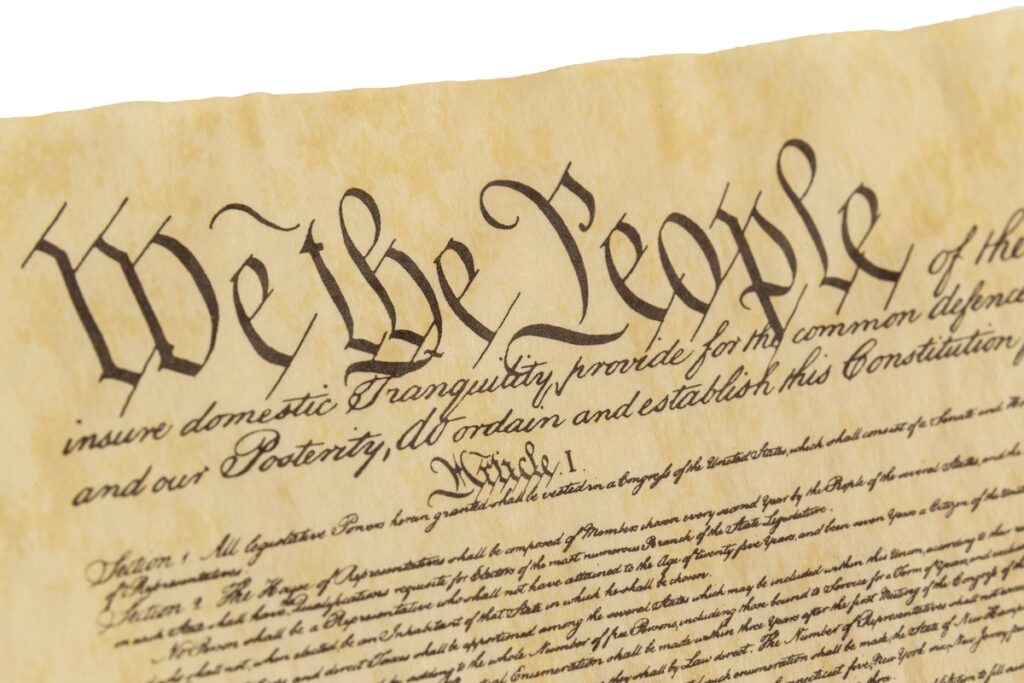 We the People of the
insure domestic Tranquility, provide for the common defence
and our Posterity, do ordain and establish this Constitution
Article. I.
Section 1. All legislative Powers herein granted shall be vested in a Congress of the United States, which shall consist of a Senate and
of Representatives.
Section 2. The House of Representatives shall be composed of Members chosen every second Year by the People of the several States, and the
in each State shall have the Qualifications requisite for Electors of the most numerous Branch of the State Legislature.
No Person shall be a Representative who shall not have attained to the Age of twenty five Years, and been seven Years a Citizen of the
who shall not, when elected, be an Inhabitant of that State in which he shall be chosen.
and direct Taxes shall be apportioned among the several States which may be included within this Union, according to
by adding to the whole Number of free Persons, including those bound to Service for a Term of Years, and
Enumeration shall be made within three Years after the first Meeting of the Congress of the
they shall by Law direct. The Number of Representatives shall not
such enumeration shall be made, the State of New
Connecticut five, New York six, New Jersey
three.